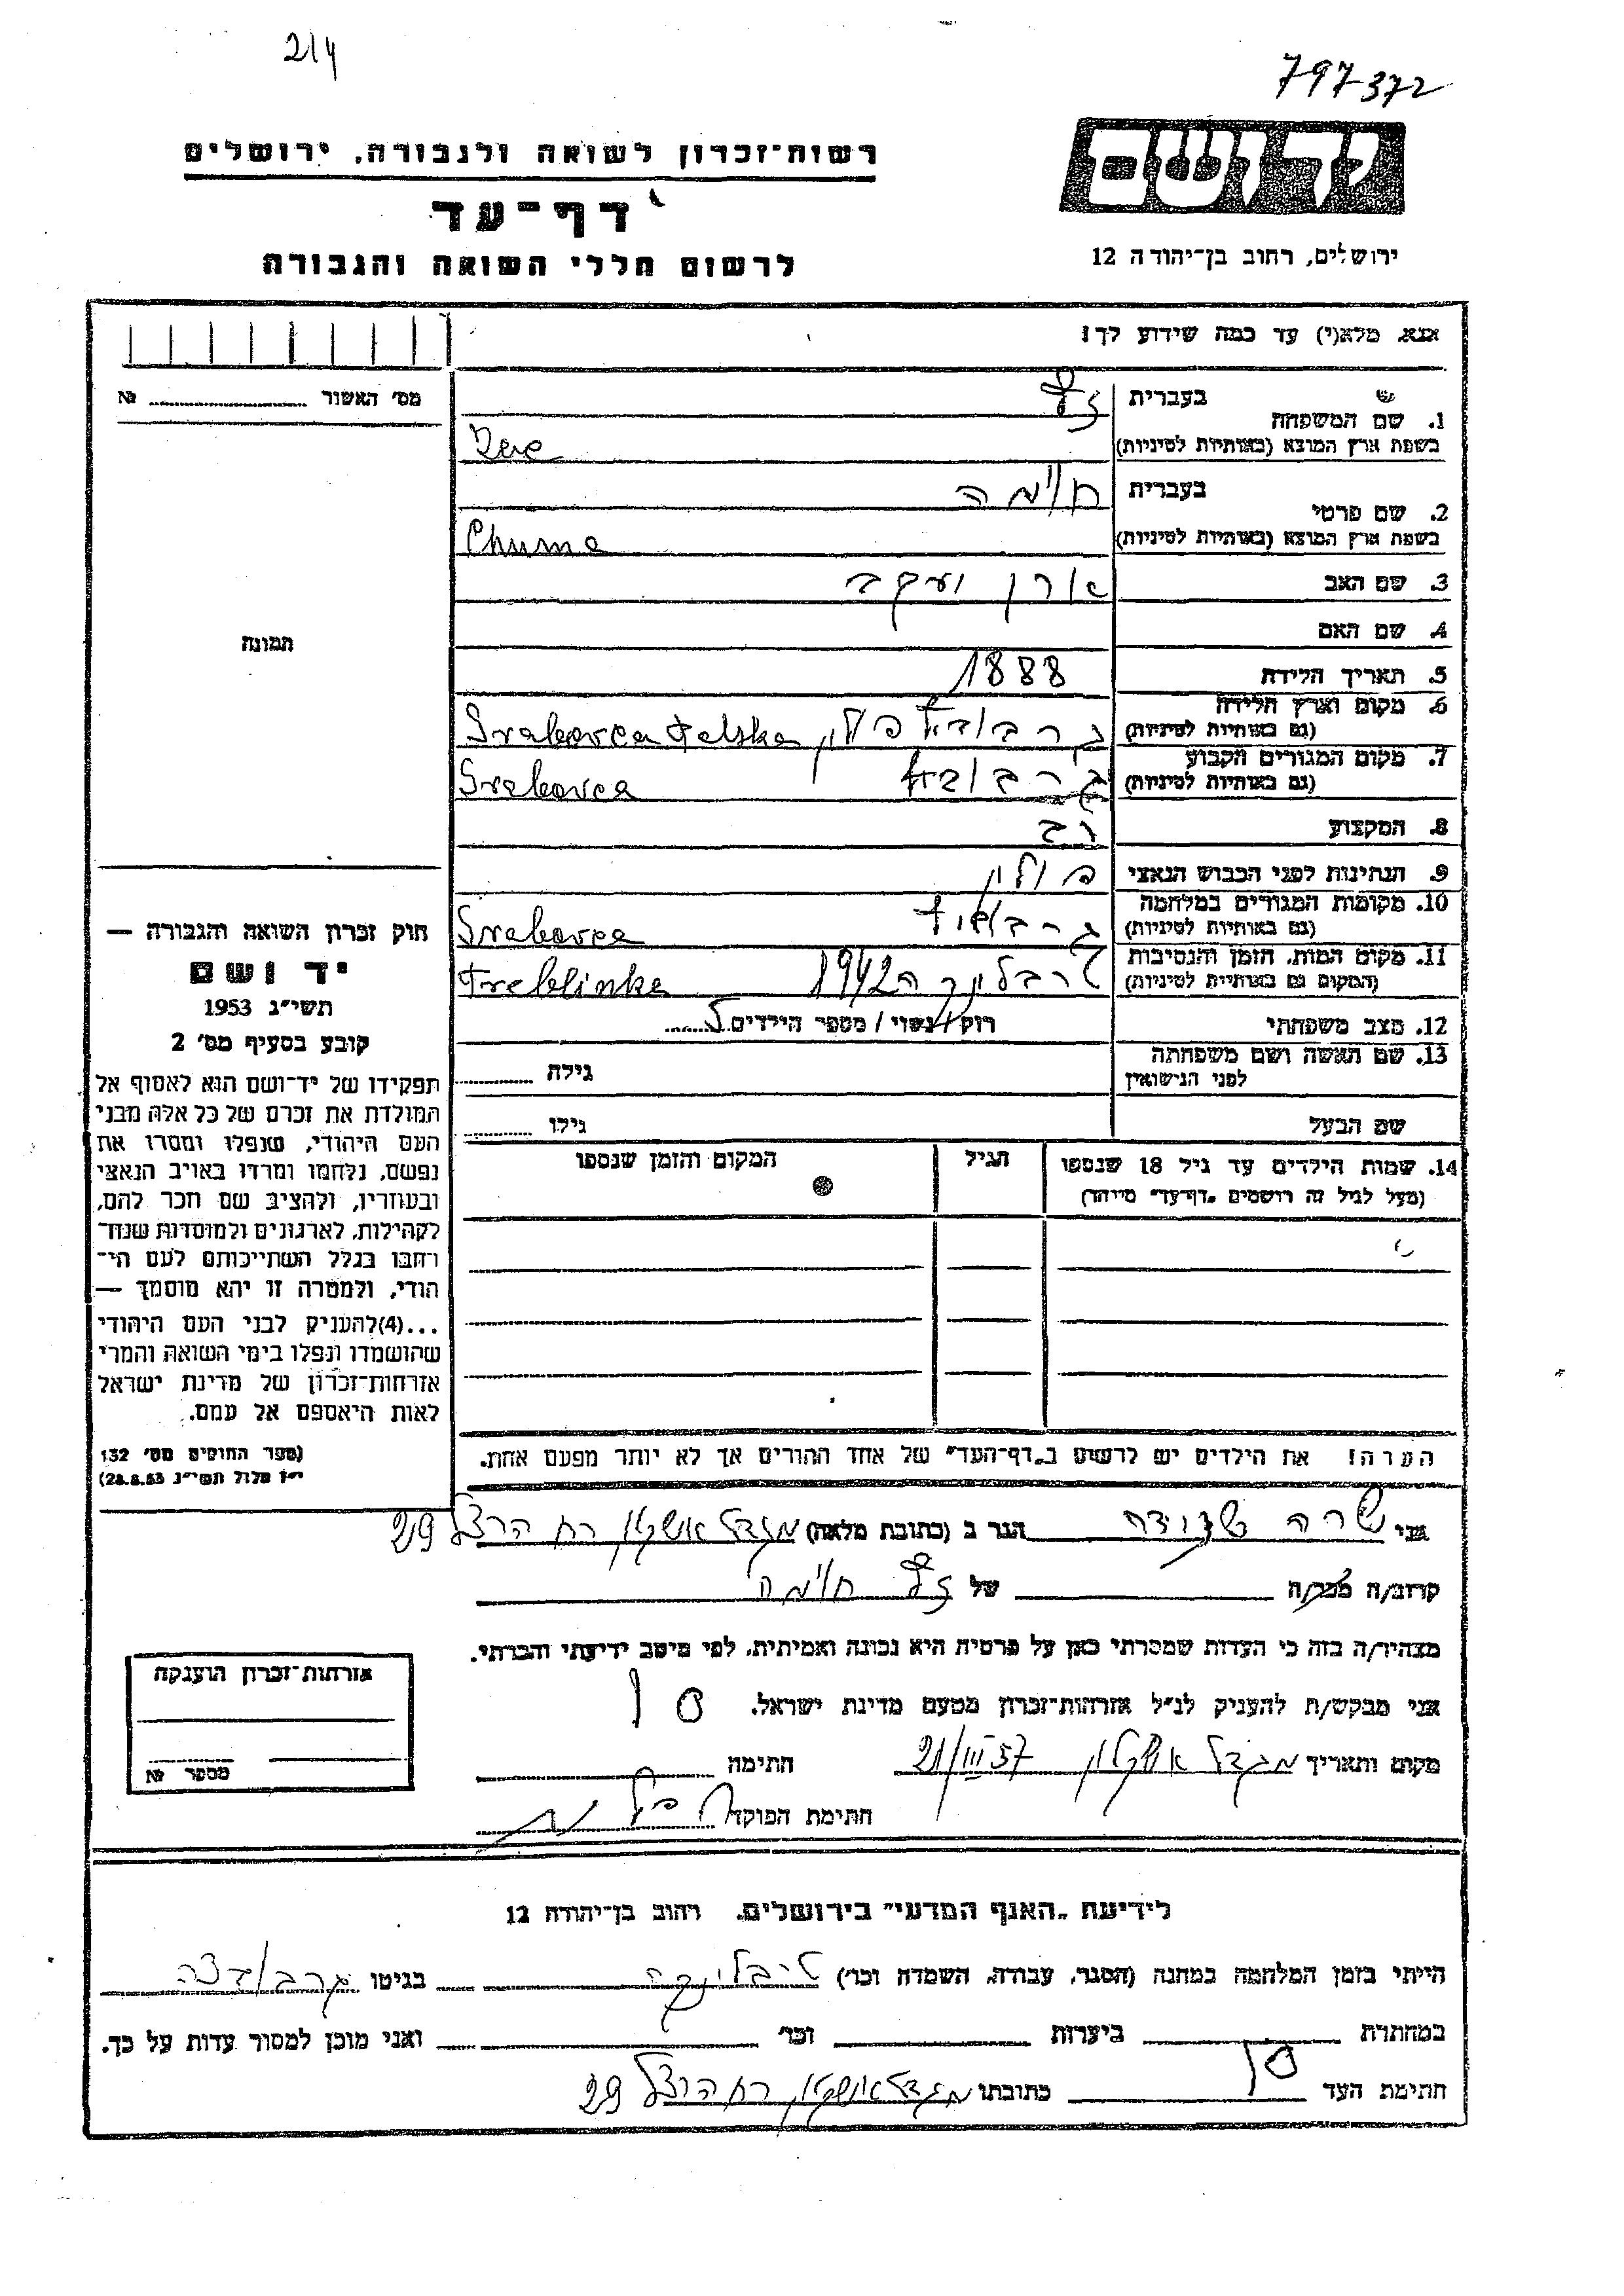 214
797372
יד ושם
רשות־זכרון לשואה ולגבורה, ירושלים
דף־עד
לרשום חללי השואה והגבורה
ירושלים, רחוב בן־יהודה 12
אנא, מלא(י) עד כמה שידוע לך!
מס׳ האשור № 
1. שם המשפחה
בעברית
בשפת ארץ המוצא (באותיות לטיניות)
2. שם פרטי
בעברית חומה
בשפת ארץ המוצא (באותיות לטיניות) Chuma
3. שם האב ארן יעקב
4. שם האם
5. תאריך הלידה 1888
6. מקום וארץ הלידה
(גם באותיות לטיניות) פולין
7. מקום המגורים הקבוע
(גם באותיות לטיניות)
8. המקצוע רב
9. הנתינות לפני הכבוש הנאצי פולין
10. מקומות המגורים במלחמה
(גם באותיות לטיניות)
11. מקום המות, הזמן והנסיבות
(המקום גם באותיות לטיניות) 1942 Treblinka
12. מצב משפחתי רווק / נשוי / מספר הילדים
13. שם האשה ושם משפחתה
לפני הנישואין גילה
שם הבעל גילו
14. שמות הילדים עד גיל 18 שנספו
(מעל לגיל זה רושמים "דף־עד" מיוחד)
הגיל
המקום והזמן שנספו
הערה! את הילדים יש לרשום ב"דף־העד" של אחד ההורים אך לא יותר מפעם אחת.
תמונה
חוק זכרון השואה והגבורה —
יד ושם
תשי״ג 1953
קובע בסעיף מס׳ 2
תפקידו של יד־ושם הוא לאסוף אל
המולדת את זכרם של כל אלה מבני
העם היהודי, שנפלו ומסרו את
נפשם, נלחמו ומרדו באויב הנאצי
ובעוזריו, ולהציב שם וזכר להם,
לקהילות, לארגונים ולמוסדות שנח־
רבו בגלל השתייכותם לעם הי־
הודי, ולמטרה זו יהא מוסמך —
...(4)להעניק לבני העם היהודי
שהושמדו ונפלו בימי השואה והמרי
אזרחות־זכרון של מדינת ישראל
לאות היאספם אל עמם.
(ספר החוקים מס׳ 132
י״ז אלול תשי״ג 28.8.53)
אני שרה הגר ב (כתובת מלאה) מגדל אשקלון רח הרצל 29
קרוב/ה מכר/ה של חומה
מצהיר/ה בזה כי העדות שמסרתי כאן על פרטיה היא נכונה ואמיתית, לפי מיטב ידיעתי והכרתי.
אני מבקש/ת להעניק לנ״ל אזרחות־זכרון מטעם מדינת ישראל.
מקום ותאריך מגדל אשקלון 21/III 57 חתימה
חתימת הפוקד
אזרחות־זכרון הוענקה
מספר №
לידיעת "האגף המדעי" בירושלים, רחוב בן־יהודה 12
הייתי בזמן המלחמה במחנה (הסגר, עבודה, השמדה וכו׳) טרבלינקה בגיטו
במחתרת ביערות וכו׳ ואני מוכן למסור עדות על כך.
חתימת העד כתובתו מגדל אשקלון רח הרצל 29